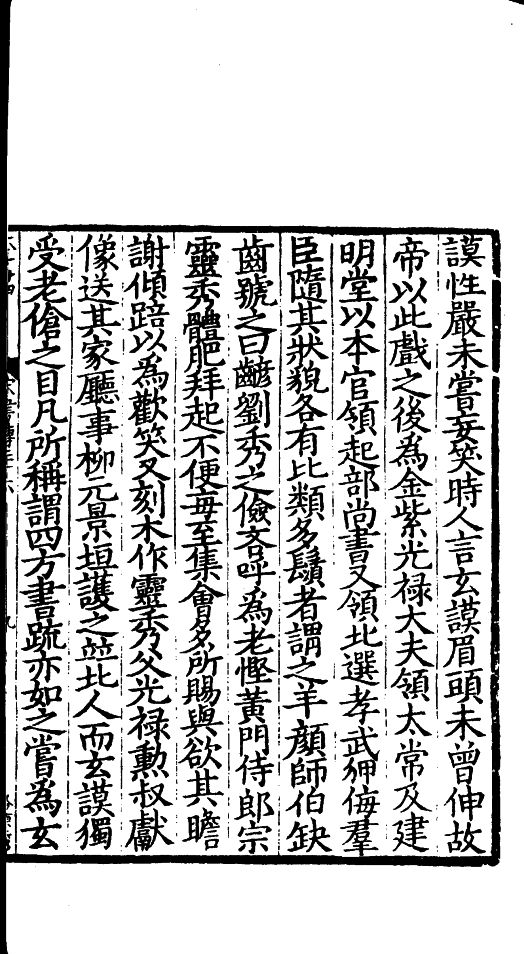 謨性嚴未嘗妄笑時人言玄謨眉頭未曾伸故
帝以此戲之後為金紫光禄大夫領太常及建
明堂以本官領起部尚書又領北選孝武狎侮羣
臣隨其狀貌各有比類多鬚者謂之羊顔師伯缺
齒號之曰齴劉秀之儉吝呼為老慳黄門侍郎宗
靈秀體肥拜起不便毎至集會多所賜與欲其瞻
謝傾踣以為歡笑又刻木作靈秀父光禄勲叔獻
像送其家廳事柳元景垣護之竝北人而玄謨獨
受老傖之目凡所稱謂四方書疏亦如之嘗為玄